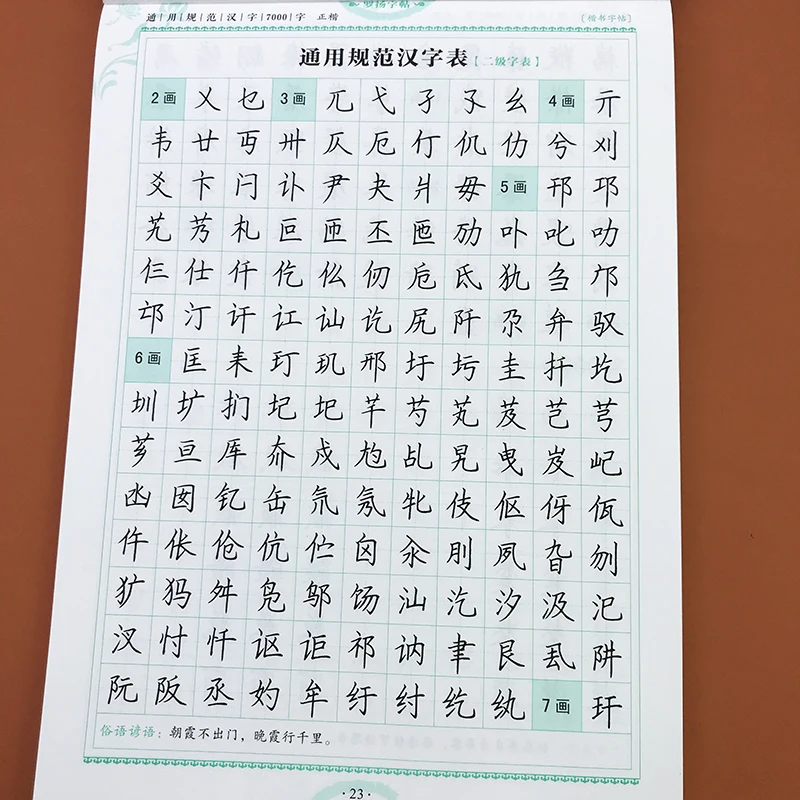 妙扬字帖
通用规范汉字7000字 正楷 〔楷书字帖〕
通用规范汉字表【二级字表】
2画 乂 乜 3画 兀 弋 孑 孓 幺 4画 亓
韦 廿 丏 卅 仄 厄 仃 仉 仂 兮 刈
爻 卞 闩 讣 尹 夬 爿 毋 5画 邗 邛
艽 艿 札 叵 匝 丕 匜 劢 卟 叱 叻
仨 仕 仟 仡 仫 仞 卮 氐 犰 刍 邝
邙 汀 讦 讧 讪 讫 尻 阡 尕 弁 驭
6画 匡 耒 玎 玑 邢 圩 圬 圭 扦 圪
圳 圹 扪 圮 圯 芊 芍 芄 芨 芑 芎
芗 亘 厍 夼 戍 尥 乩 旯 曳 岌 屺
凼 囡 钇 缶 氘 氖 牝 伎 伛 伢 佤
仵 伥 伧 伉 伫 囟 汆 刖 夙 旮 刎
犷 犸 舛 凫 邬 饧 汕 汔 汐 汲 汜
汊 忖 忏 讴 讵 祁 讷 聿 艮 厾 阱
阮 阪 丞 妁 牟 纡 纣 纥 纨 7画 玕
俗语谚语：朝霞不出门，晚霞行千里。
·23·